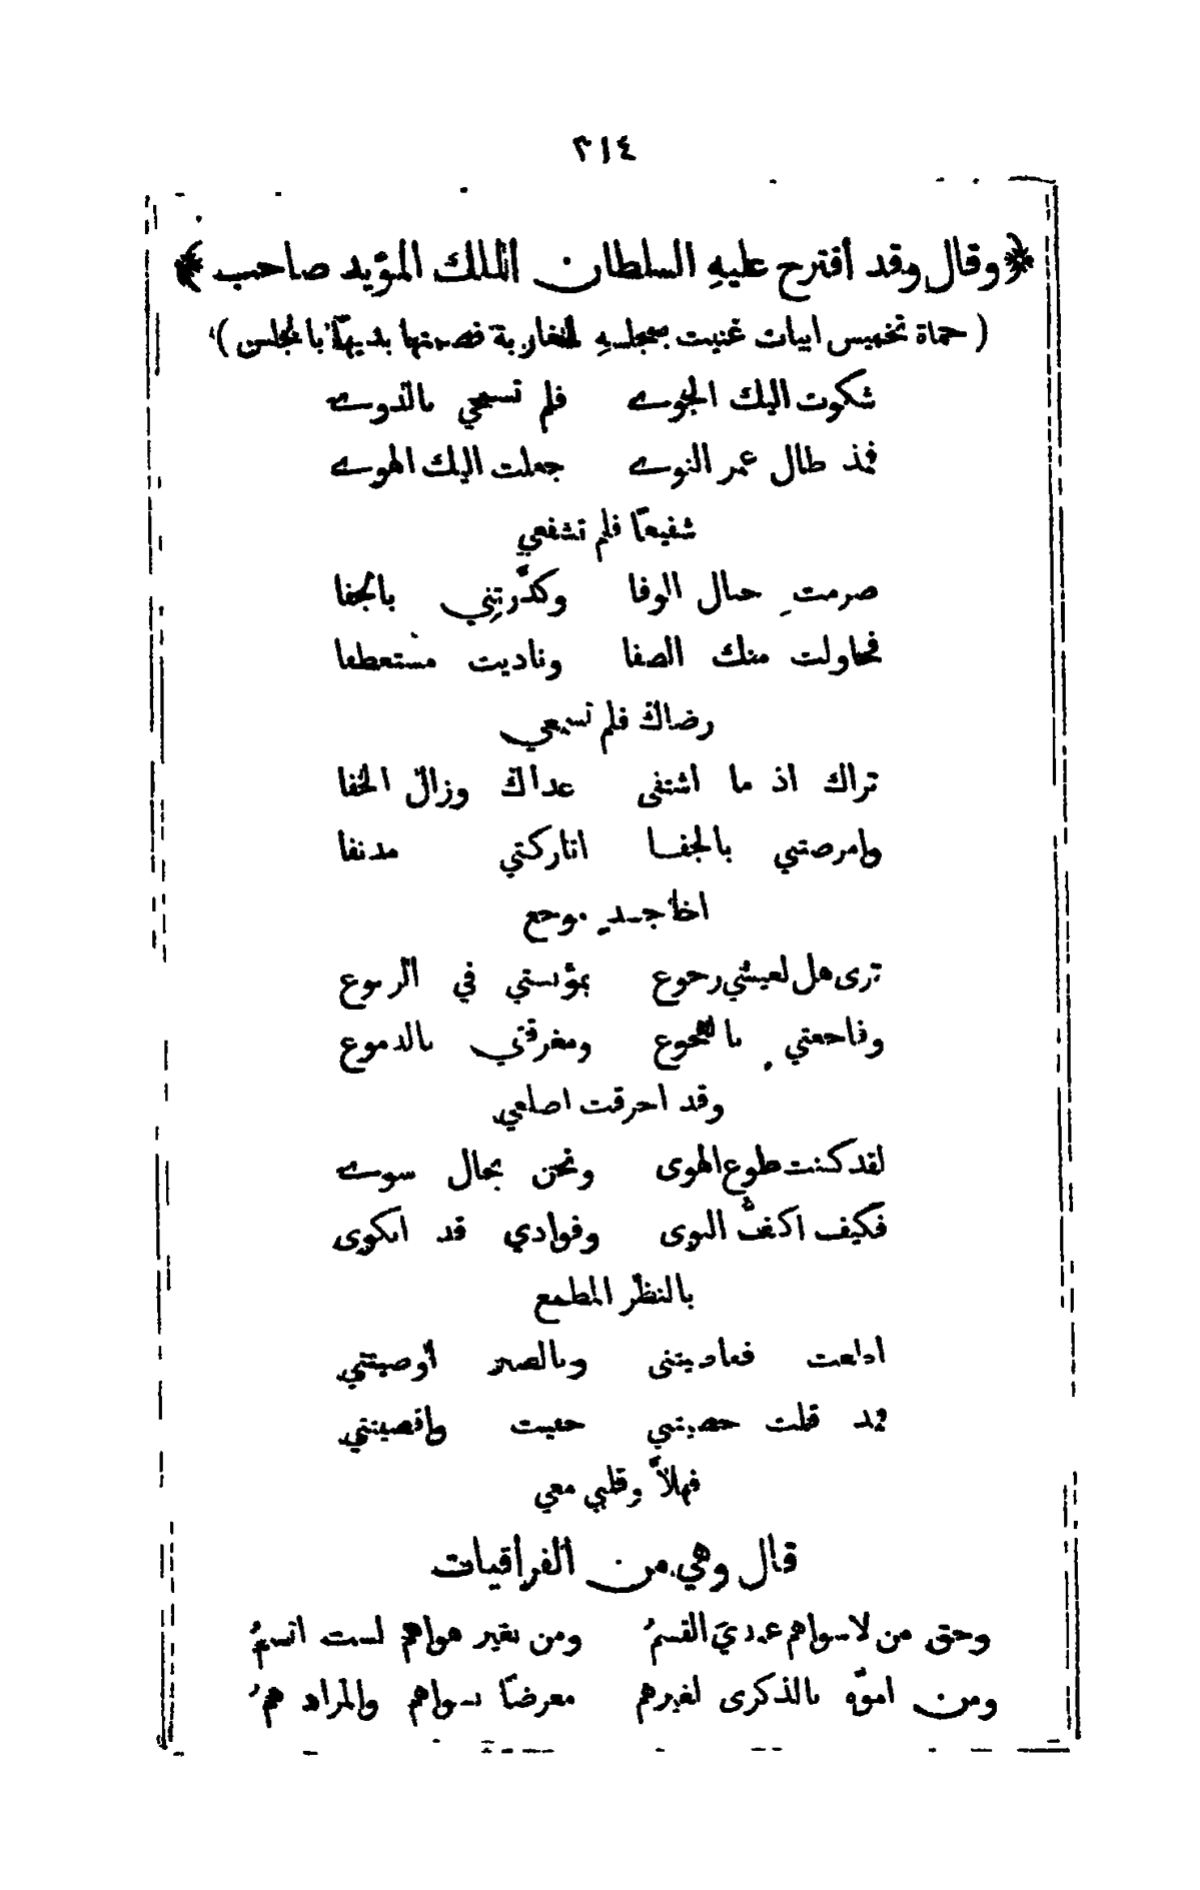 ٣١٤
﴿وقال وقد أقترح عليهِ السلطان الملك المؤيد صاحب﴾
( حماة تخميس ابيات غنيت بمجلسهِ للمغاربة فضمنها بديهًا بالمجلس )
شكوت اليك الجوے فلم تسمحي بالدوے
فمذ طال عمر النوے جعلت اليك الهوے
شفيعًا فلم تشفعي
صرمتِ حبال الوفا وكدَّرتِني بالجفا
فحاولت منك الصفا وناديت مستعطفا
رضاك فلم تسمعي
تراك اذ ما اشتفى عداك وزال الخفا
وامرضتني بالجفا اتاركتي مدنفا
اخا جسدٍ موجع
ترى هل لعيشي رجوع بمؤنستي في الربوع
وفاجعتي بالهجوع ومغرقتي بالدموع
وقد احرقت اضلعي
لقد كنت طوع الهوى ونحن بحال سوے
فكيف اكفُّ النوى وفوادي قد اكوى
بالنظر المطمع
اطعت فعاديتنى وبالصبر أوصيتني
فمذ قلت حصنتني جفيت واقصيتني
فهلاَّ وقلبي معي
قال وهي من الفراقيات
وحق من لاسواهم عندي القسمُ ومن بغير هواهم لست اتسمُ
ومن اموّه بالذكرى لغيرهم معرضًا بسواهم والمراد همُ